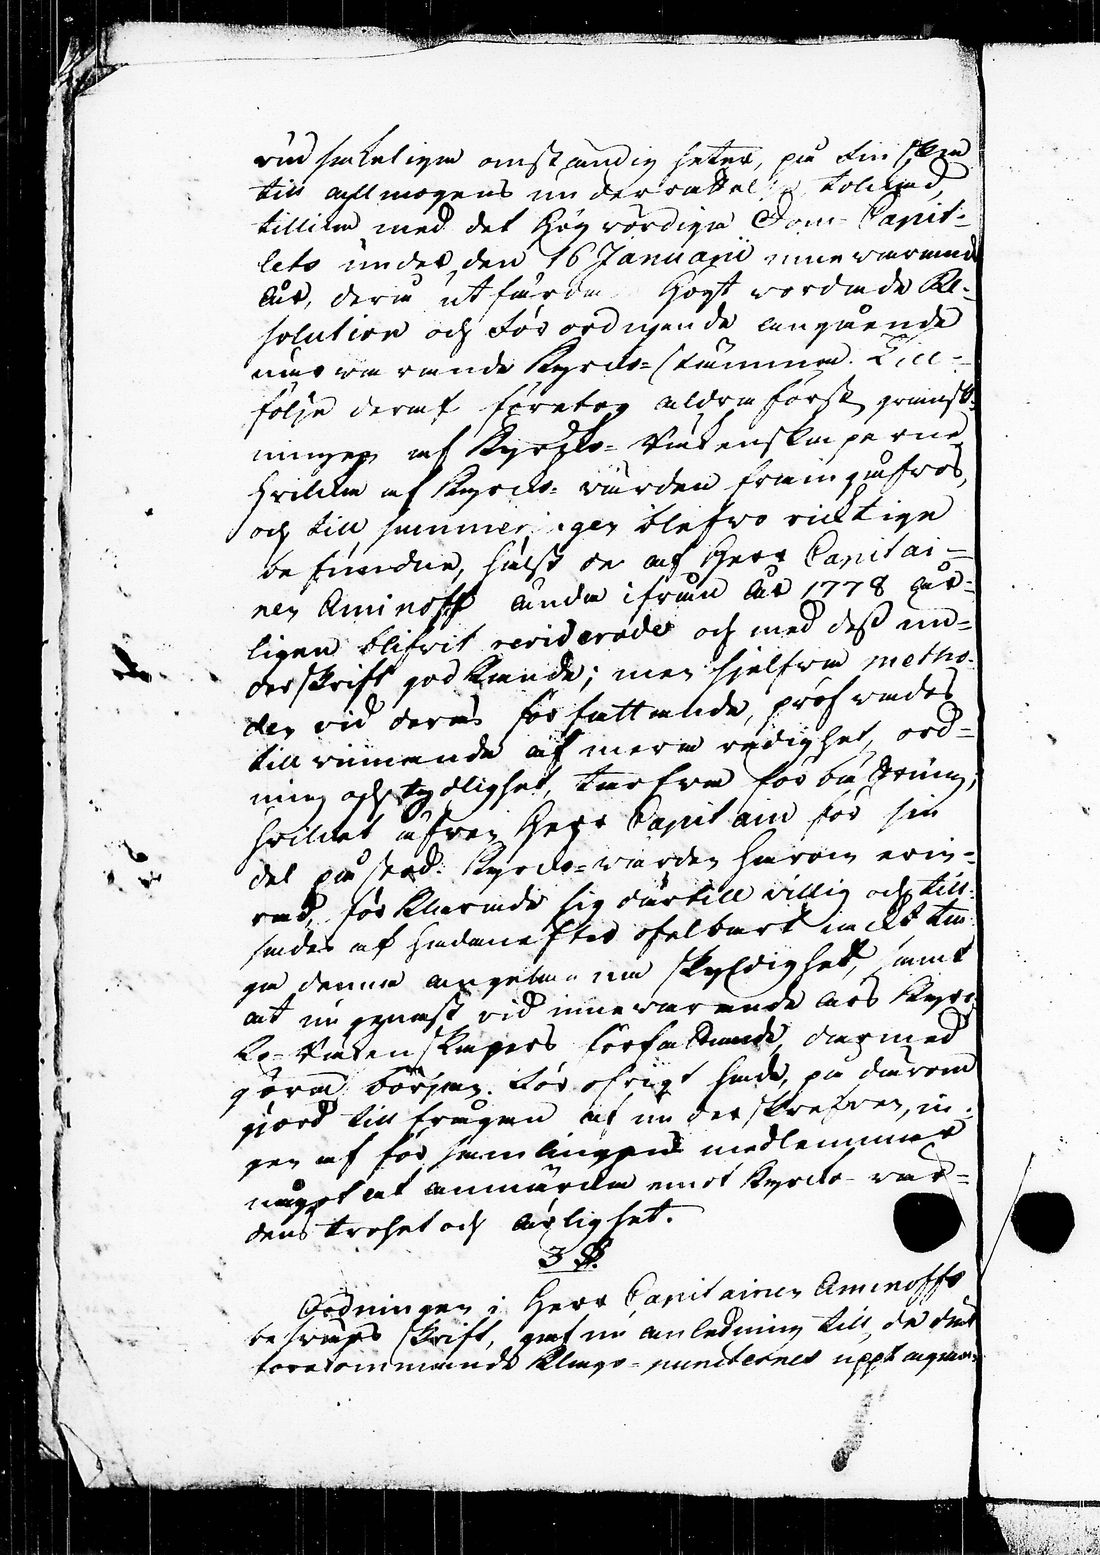 omständigheter, på Finskan
till allmogens underrättelse tolkad,
tillika med det Högvördiga Dom-Capit-
lets under den 16 Januarii innevarande
år, derå utfärda Högt vördade Re-
solution och Förordnande angående
nu varande Kyrcko-stämma. Till-
följe deraf företog aldraförst gransk-
ningen af Kyrcko-Räkenskaperne
hvilka af Kyrcko-värden framgåfvos,
och till summeringen blefvo richtiga
befundne, hälst de af Herr Capitai-
nen Aminoff ända ifrån år 1778 år-
ligen blifvit reviderade och med dess un-
derskrift godkände; men sjelfva metho-
den vid deras författande, pröfvades
till vinnande af mera redighet, ord-
ning och tydlighet, tarfva förbättring;
hvilcket äfven Herr Capitain för sin
del påstod. Kyrcko-värden härom erin-
rad, förklarade sig därtill villig och till-
sades at hädanefter ofelbart iackt ta-
ga denna angelägna skyldighet, samt
at nu genast vid innevarande års Kyrc-
ko-Räkenskapers författande, därmed
göra början. För öfrigt hade, på därom
gjord tillfrågan af underskrefven, in-
gen af församlingens medlemmar
något at anmärcka emot Kyrcko-vär-
dens trohet och ärlighet.
3 §.
Ordningen i Herr Capitainen Aminoffs
besvärs skrift, gaf nu anledning till, de där
förekommande Klago-puncternes upptagan-